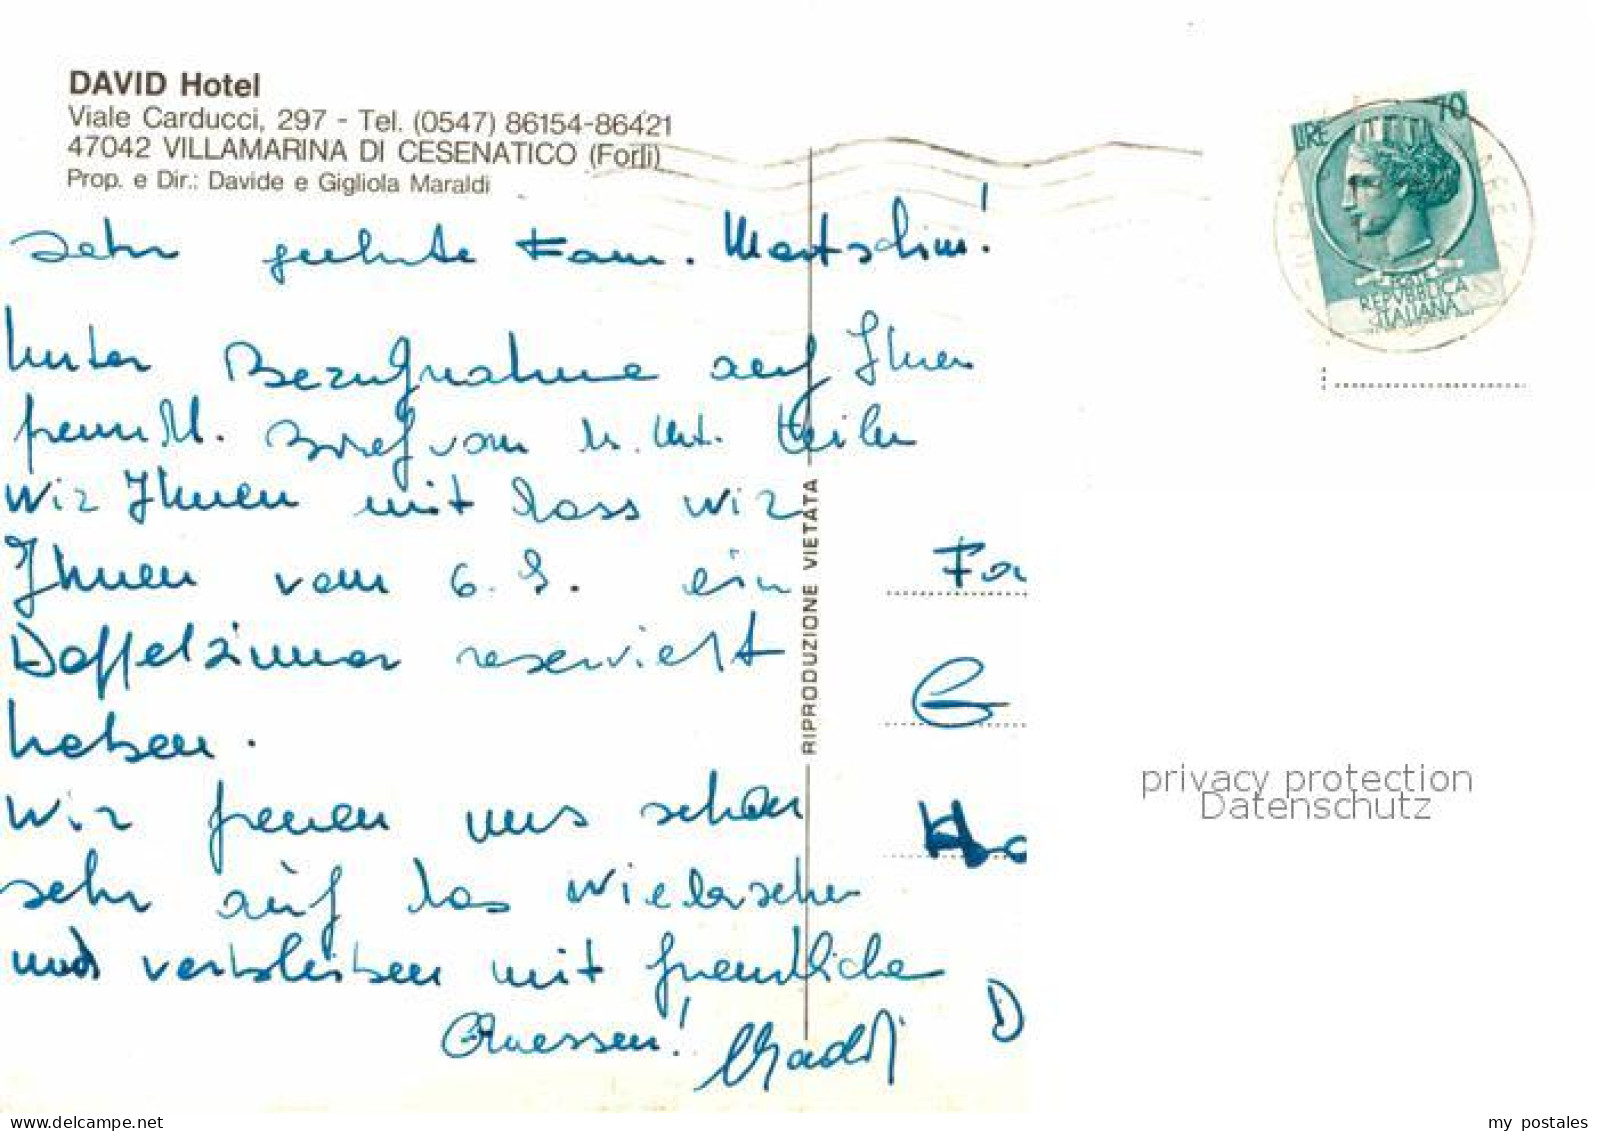 DAVID Hotel
Viale Carducci, 297 - Tel. (0547) 86154-86421
47042 VILLAMARINA DI CESENATICO (Forlì)
Prop. e Dir.: Davide e Gigliola Maraldi
LIRE 70
POSTE
REPVBBLICA
ITALIANA
Sehr geehrte Fam. Martschin!
Unter Bezugnahme auf Ihren
freundl. Brief vom teilen
wir Ihnen mit dass wir
Ihnen vom 6.9. ein
Doppelzimmer reserviert
haben.
Wir freuen uns schon
sehr auf das Wiedersehen
und verbleiben mit freundlichen
Gruessen! Maraldi
RIPRODUZIONE VIETATA
Fa
G
Ho
D
privacy protection
Datenschutz
www.delcampe.net
my_postales